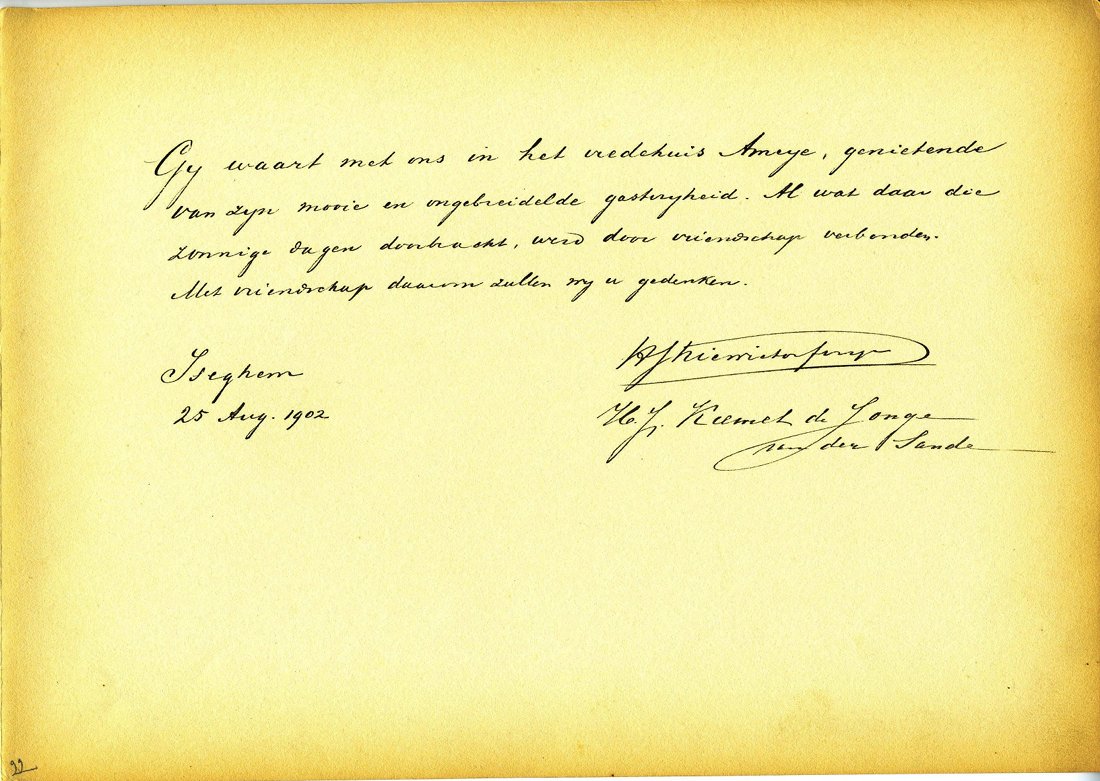 Gy waart met ons in het vredehuis Ameye, genietende
van zyn mooie en ongebreidelde gastvryheid. Al wat daar die
zonnige dagen doorbracht, werd door vriendschap verbonden.
Met vriendschap daarom zullen wy u gedenken.
Iseghem
25 Aug. 1902
H. J. de Jonge
van der Sande
22